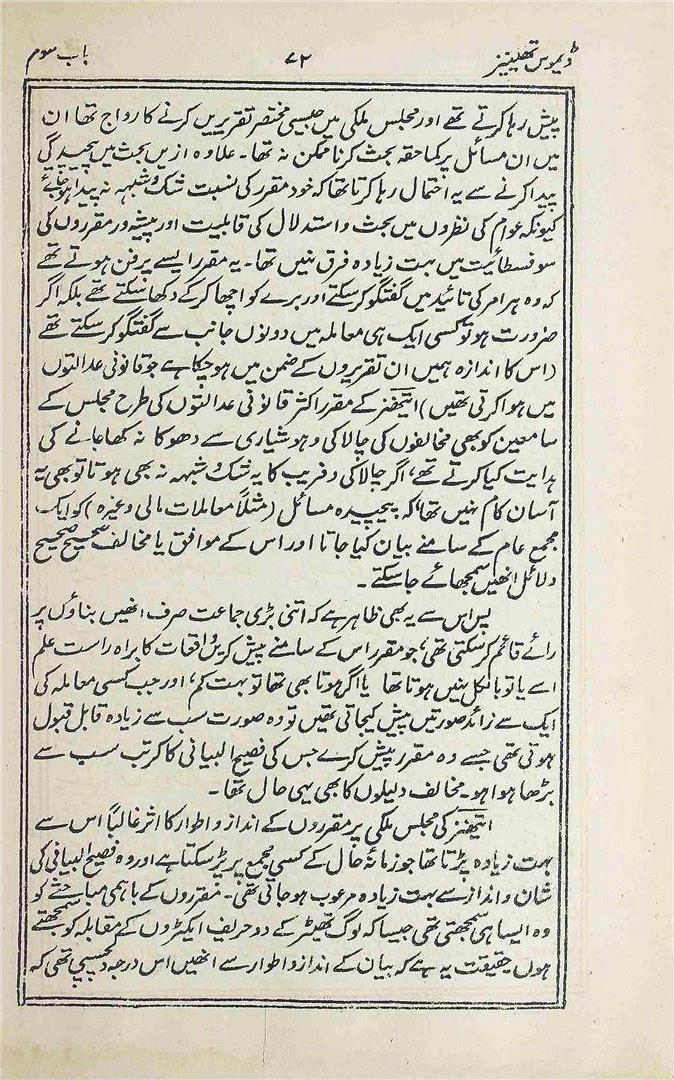 ڈیموس تھینیز ۷۲ باب سوم
پیش رہا کرتے تھے اور مجلس ملکی میں جیسی مختصر تقریریں کرنے کا رواج تھا ان
میں ان مسائل پر کماحقہ بحث کرنا ممکن نہ تھا۔ علاوہ ازیں بحث میں پیچیدگی
پیدا کرنے سے یہ احتمال رہا کرتا تھا کہ خود مقرر کی نسبت شک و شبہہ نہ پیدا ہو جائے
کیونکہ عوام کی نظروں میں بحث و استدلال کی قابلیت اور پیشہ ور مقرروں کی
سوفسطائیت میں بہت زیادہ فرق نہیں تھا۔ یہ مقرر ایسے پرفن ہوتے تھے
کہ وہ ہر امر کی تائید میں گفتگو کر سکتے اور برے کو اچھا کر کے دکھا سکتے تھے بلکہ اگر
ضرورت ہو تو کسی ایک ہی معاملہ میں دونوں جانب سے گفتگو کر سکتے تھے
(اس کا اندازہ ہمیں ان تقریروں کے ضمن میں ہو چکا ہے جو قانونی عدالتوں
میں ہوا کرتی تھیں) ایتھنز کے مقرر اکثر قانونی عدالتوں کی طرح مجلس کے
سامعین کو بھی مخالفوں کی چالاکی و ہوشیاری سے دھوکا نہ کھا جانے کی
ہدایت کیا کرتے تھے، اگر چالاکی و فریب کا یہ شک و شبہہ نہ بھی ہوتا تو بھی یہ
آسان کام نہیں تھا، کہ پیچیدہ مسائل (مثلاً معاملات مالی وغیرہ) کو ایک
مجمع عام کے سامنے بیان کیا جاتا اور اس کے موافق یا مخالف صحیح صحیح
دلائل انھیں سمجھائے جا سکتے۔
پس اس سے یہ بھی ظاہر ہے کہ اتنی بڑی جماعت صرف انھیں بناؤں پر
رائے قائم کر سکتی تھی، جو مقرر اس کے سامنے پیش کریں واقعات کا براہ راست علم
اسے یا تو بالکل نہیں ہوتا تھا یا اگر ہوتا بھی تھا تو بہت کم، اور جب کسی معاملہ کی
ایک سے زائد صورتیں پیش کیجاتی تھیں تو وہ صورت سب سے زیادہ قابل قبول
ہوتی تھی جسے وہ مقرر پیش کرے جس کی فصیح البیانی کا کرتب سب سے
بڑھا ہوا ہو۔ مخالف دلیلوں کا بھی یہی حال تھا۔
ایتھنز کی مجلس ملکی پر مقرروں کے انداز و اطوار کا اثر غالباً اس سے
بہت زیادہ پڑتا تھا جو زمانۂ حال کے کسی مجمع پر پڑ سکتا ہے اور وہ فصیح البیانی کی
شان و انداز سے بہت زیادہ مرعوب ہو جاتی تھی۔ مقرروں کے باہمی مباحثے کو
وہ ایسا ہی سمجھتی تھی جیسا کہ لوگ تھیٹر کے دو حریف ایکٹروں کے مقابلہ کو سمجھتے
ہوں حقیقت یہ ہے کہ بیان کے انداز و اطوار سے انھیں اس درجہ دلچسپی تھی کہ